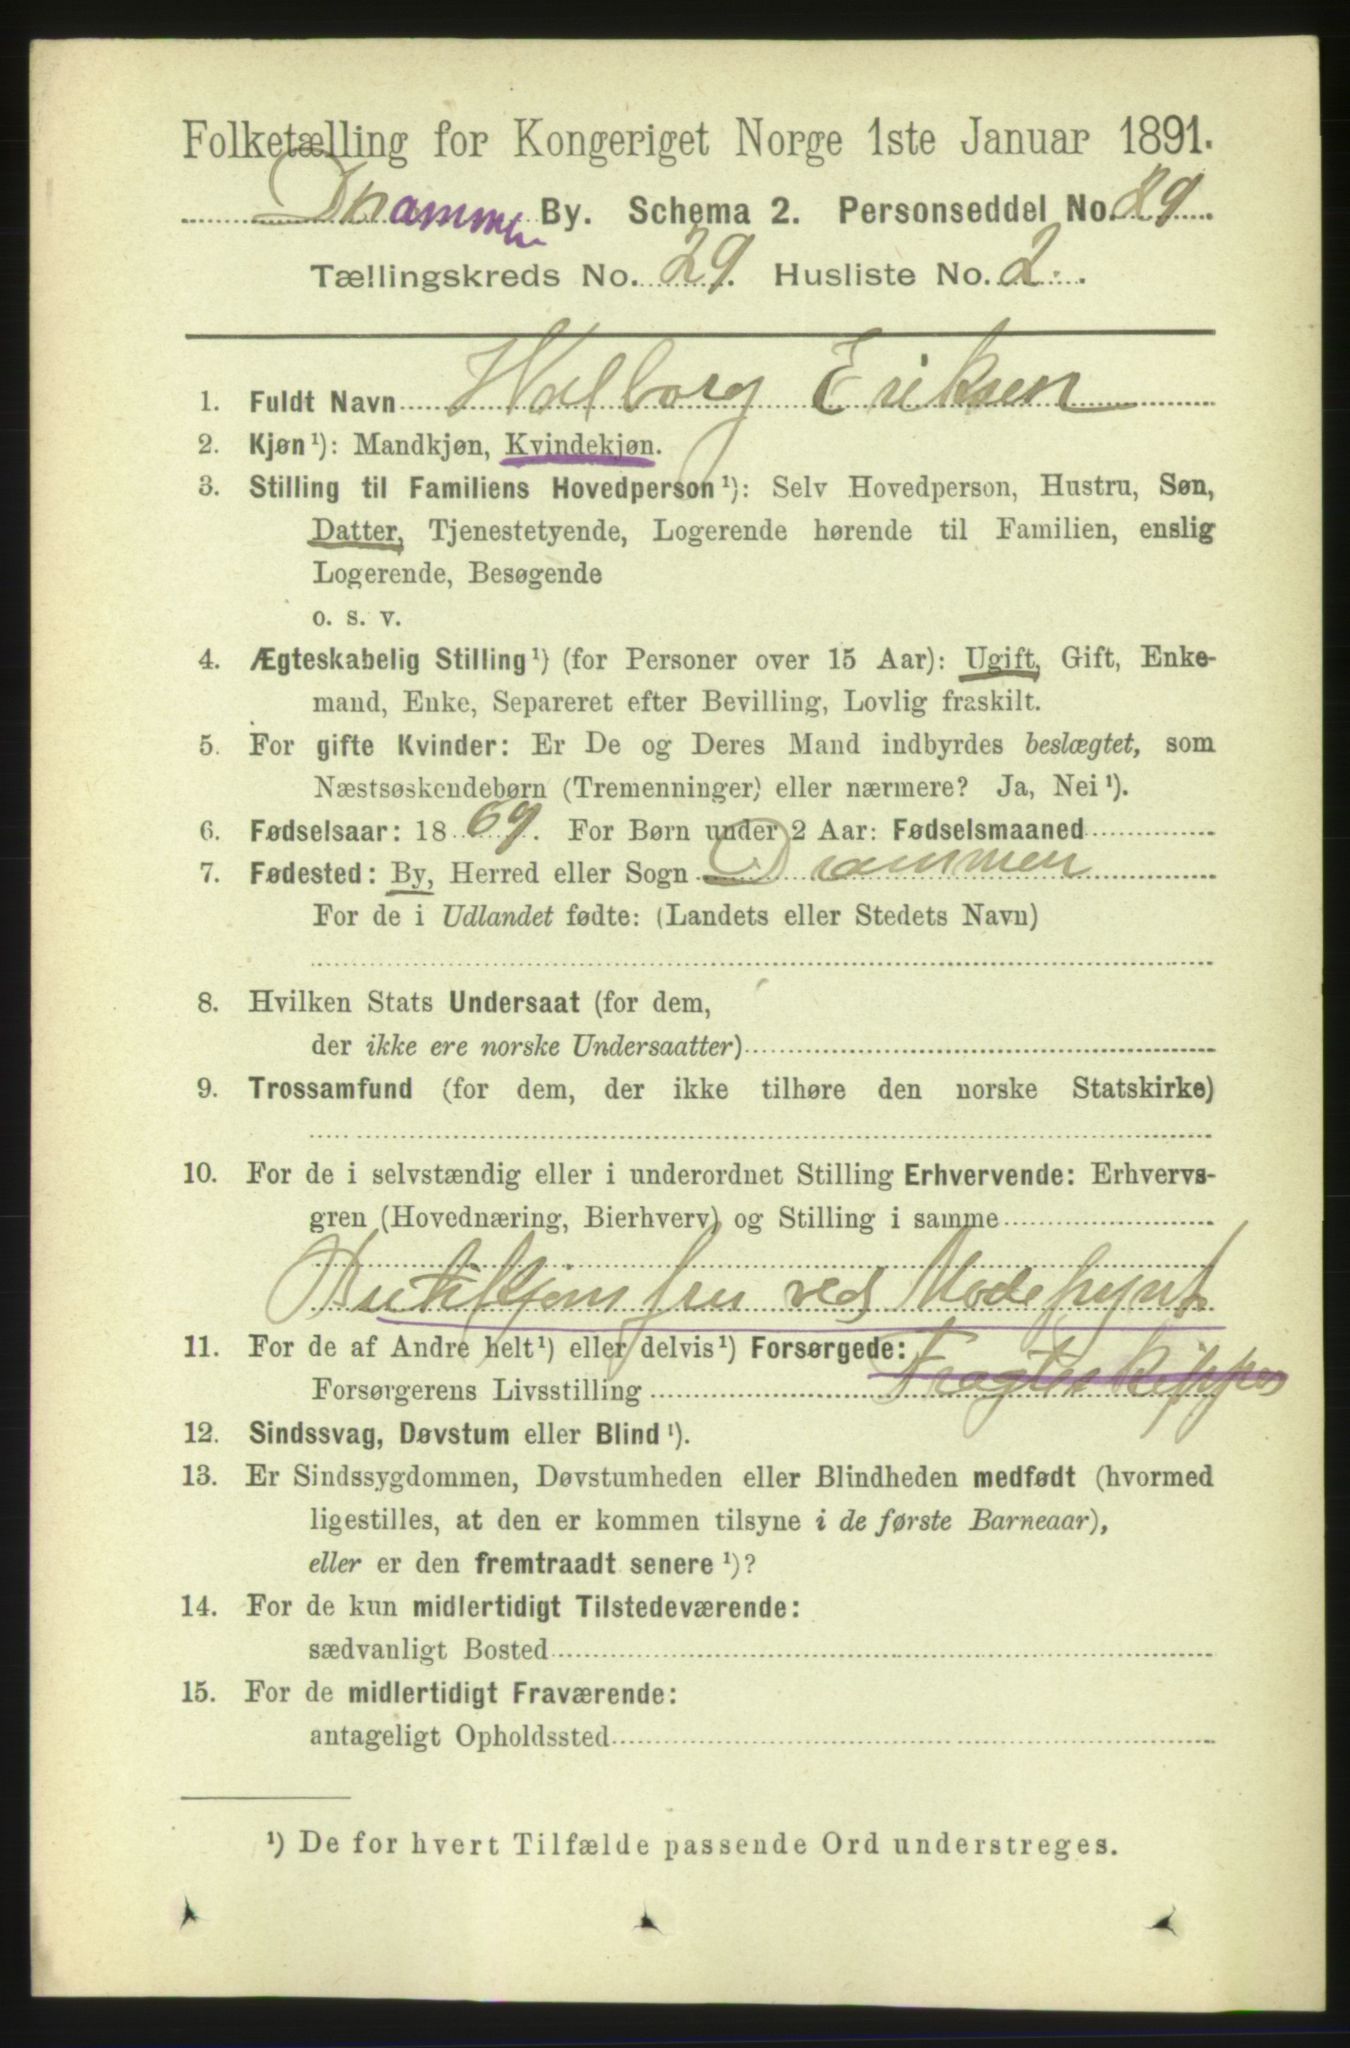 Folketælling for Kongeriget Norge 1ste Januar 1891.
Drammen By. Schema 2. Personseddel No. 89
Tællingskreds No. 29. Husliste No. 2.
1. Fuldt Navn Valborg Eriksen
2. Kjøn ¹): Mandkjøn, Kvindekjøn.
3. Stilling til Familiens Hovedperson ¹): Selv Hovedperson, Hustru, Søn,
Datter, Tjenestetyende, Logerende hørende til Familien, enslig
Logerende, Besøgende
o. s. v.
4. Ægteskabelig Stilling ¹) (for Personer over 15 Aar): Ugift, Gift, Enke-
mand, Enke, Separeret efter Bevilling, Lovlig fraskilt.
5. For gifte Kvinder: Er De og Deres Mand indbyrdes beslægtet, som
Næstsøskendebørn (Tremenninger) eller nærmere? Ja, Nei ¹).
6. Fødselsaar: 1869. For Børn under 2 Aar: Fødselsmaaned
7. Fødested: By, Herred eller Sogn Drammen
For de i Udlandet fødte: (Landets eller Stedets Navn)
8. Hvilken Stats Undersaat (for dem,
der ikke ere norske Undersaatter)
9. Trossamfund (for dem, der ikke tilhøre den norske Statskirke)
10. For de i selvstændig eller i underordnet Stilling Erhvervende: Erhvervs-
gren (Hovednæring, Bierhverv) og Stilling i samme
Butikjomfru ved Modepynt
11. For de af Andre helt ¹) eller delvis ¹) Forsørgede:
Forsørgerens Livsstilling Fragteskipper
12. Sindssvag, Døvstum eller Blind ¹).
13. Er Sindssygdommen, Døvstumheden eller Blindheden medfødt (hvormed
ligestilles, at den er kommen tilsyne i de første Barneaar),
eller er den fremtraadt senere ¹)?
14. For de kun midlertidigt Tilstedeværende:
sædvanligt Bosted
15. For de midlertidigt Fraværende:
antageligt Opholdssted
¹) De for hvert Tilfælde passende Ord understreges.